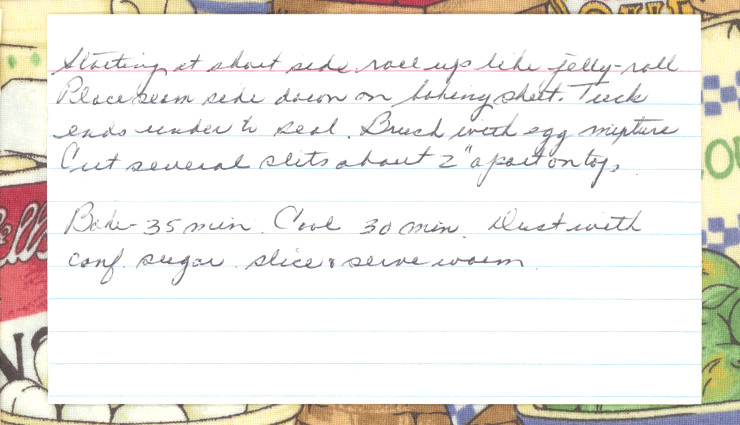 Starting at short side roll up like jelly-roll
Place seam side down on baking sheet. Tuck
ends under to seal. Brush with egg mixture
Cut several slits about 2" apart on top.
Bake - 35 min. Cool 30 min. Dust with
conf. sugar. slice & serve warm